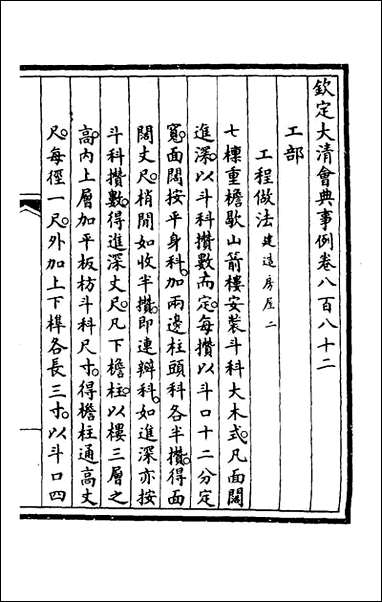 欽定大清會典事例卷八百八十二
工部
工程做法建造房屋二
七檁重檐歇山箭樓安裝斗科大木式凡面闊
進深以斗科攢數而定每攢以斗口十二分定
寬面闊按平身科加兩邊柱頭科各半攢得面
闊丈尺梢間如收半攢即連瓣科如進深亦按
斗科攢數得進深丈尺凡下檐柱以樓三層之
高內上層加平板枋斗科尺寸得檐柱通高丈
尺每徑一尺外加上下榫各長三寸以斗口四